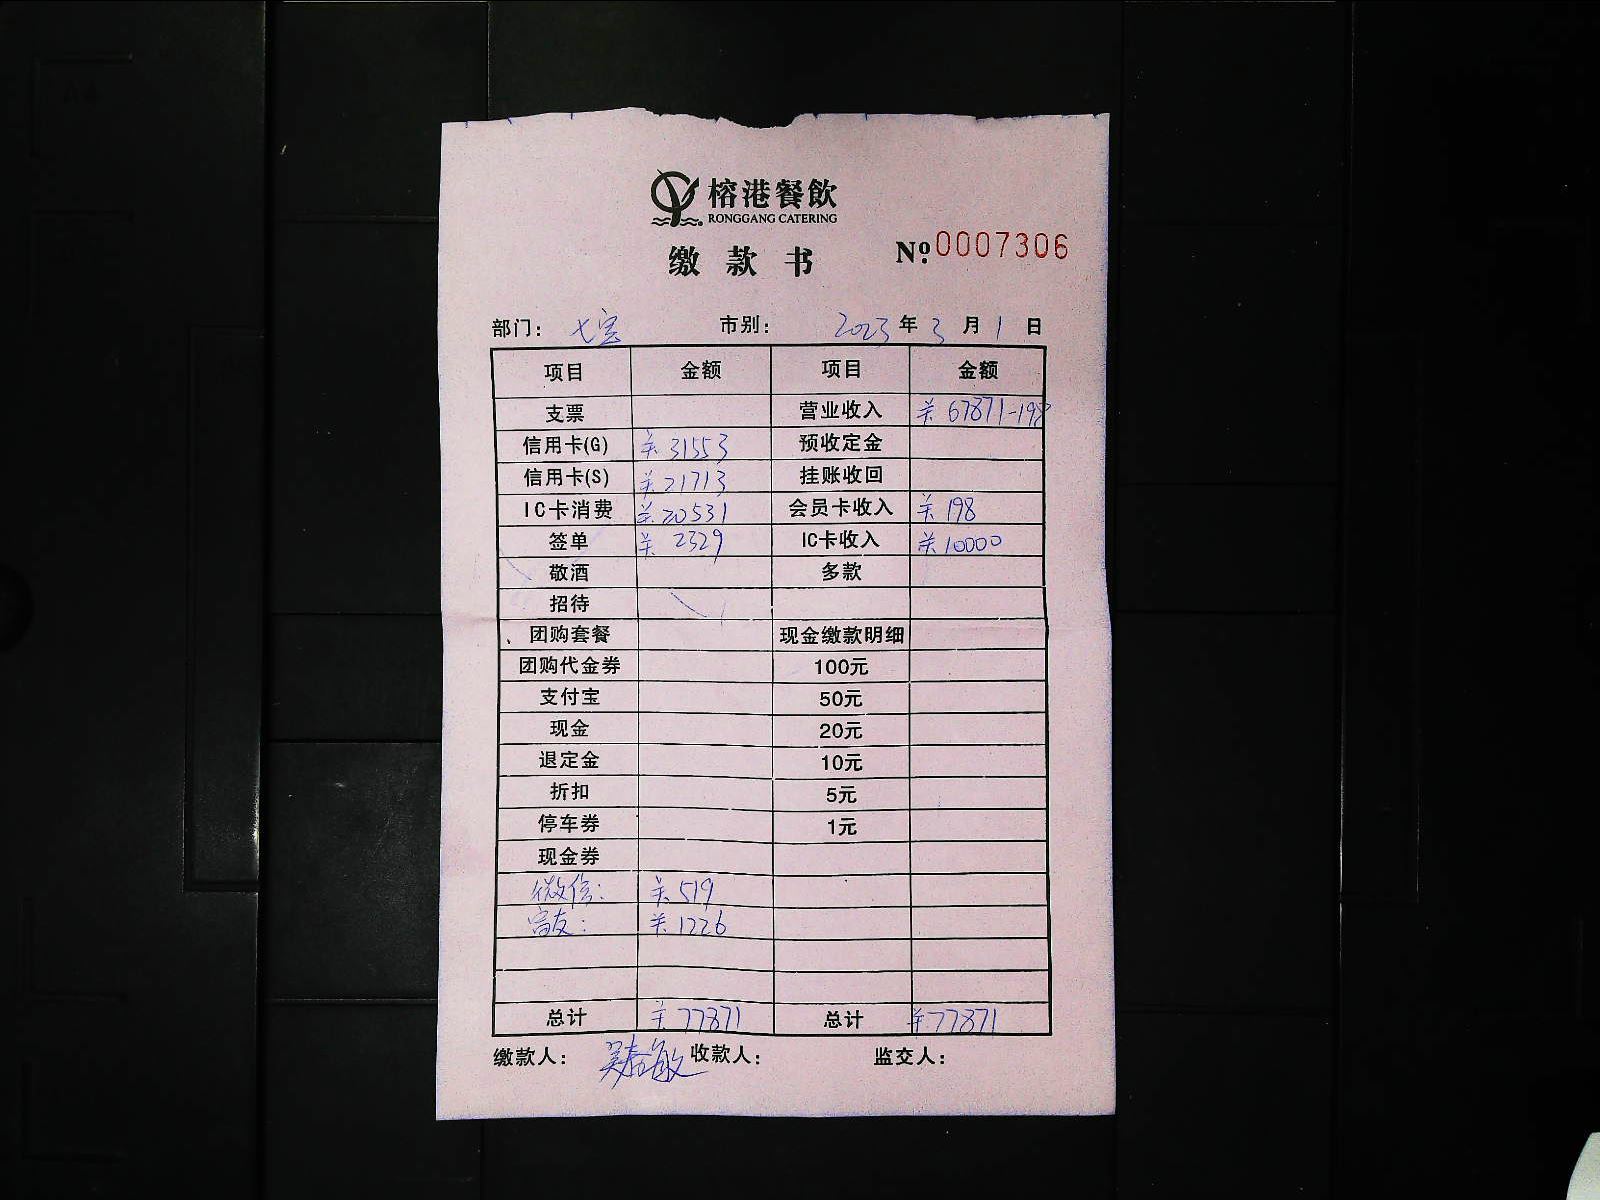 榕港餐飲
RONGGANG CATERING
缴款书 №: 0007306
部门: 七宝 市别: 2023年3月1日
项目 金额 项目 金额
支票 营业收入 ¥67871-198
信用卡(G) ¥31553 预收定金
信用卡(S) ¥21713 挂账收回
IC卡消费 ¥20531 会员卡收入 ¥198
签单 ¥2329 IC卡收入 ¥10000
敬酒 多款
招待
团购套餐 现金缴款明细
团购代金券 100元
支付宝 50元
现金 20元
退定金 10元
折扣 5元
停车券 1元
现金券
微信: ¥519
¥1226
总计 ¥77871 总计 ¥77871
缴款人: 收款人: 监交人: